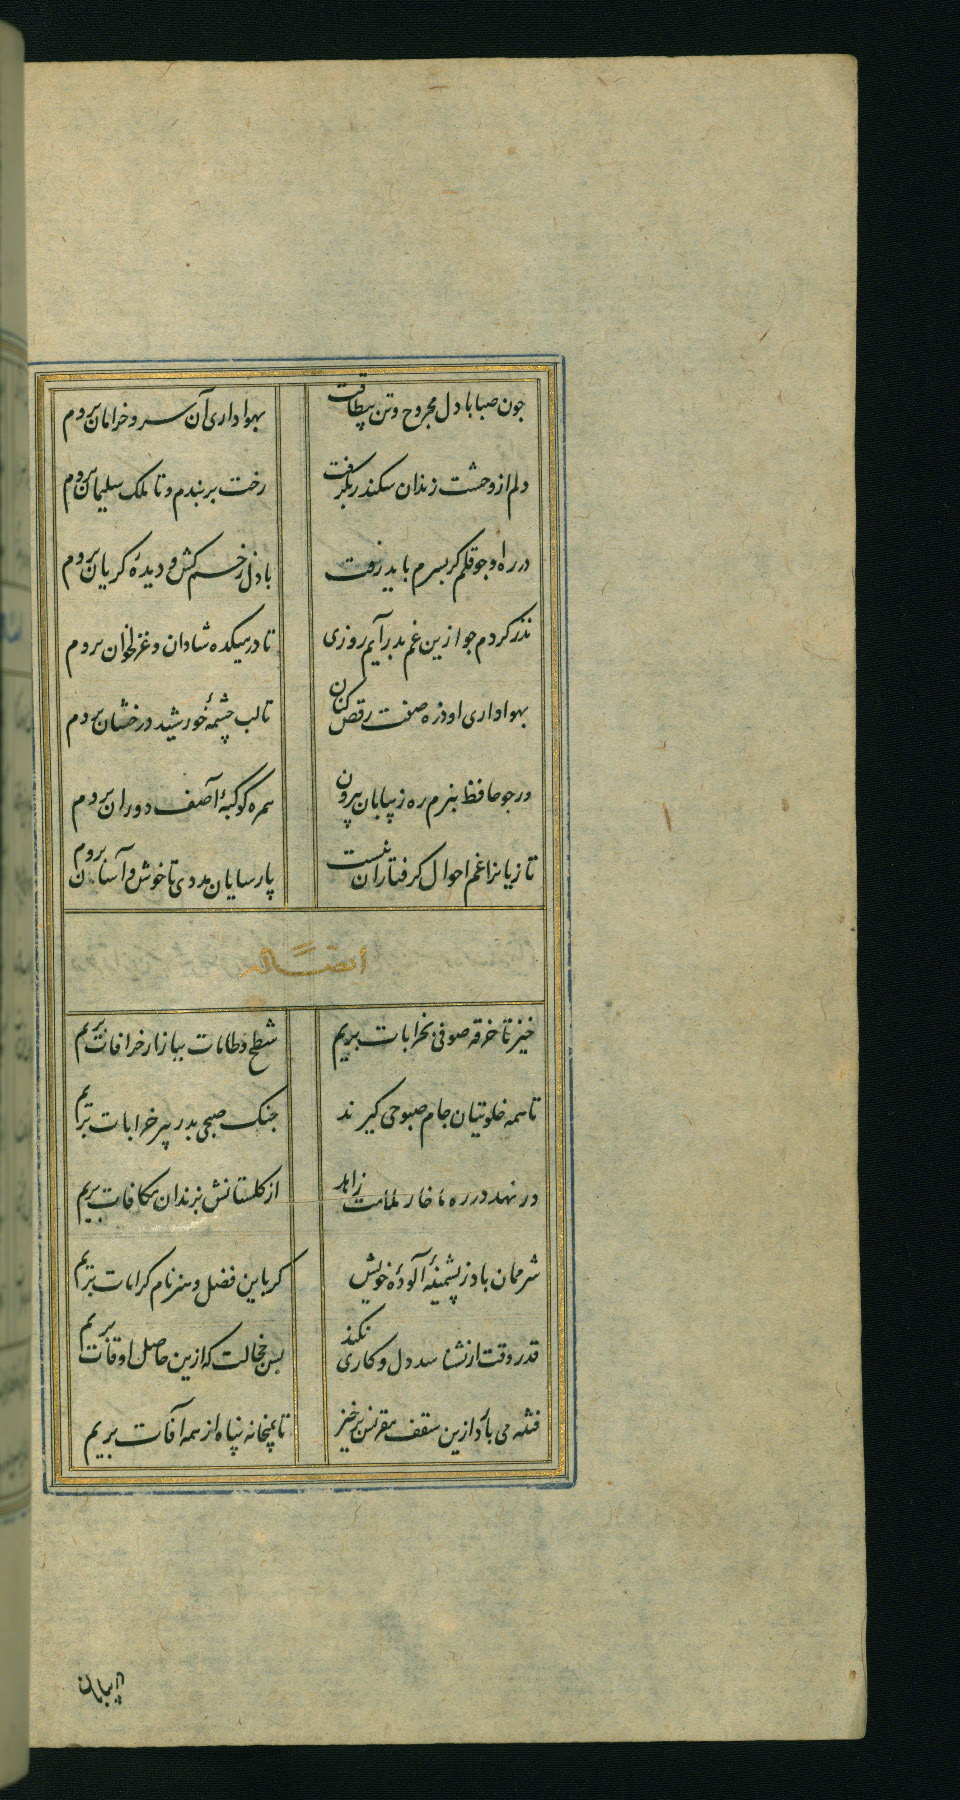 جون صبا با دل مجروح و تن بیطاقت بهواداری آن سرو خرامان بروم
دلم از وحشت زندان سکندر بکرفت رخت بربندم و تا ملک سلیمان بروم
در ره او جو قلم کر بسرم باید رفت با دل زخم کش و دیدهٔ کریان بروم
نذر کردم جو ازین غم بدر آیم روزی تا در میکده شادان و غزلخوان بروم
بهواداری او ذره صفت رقص کنان تا لب چشمهٔ خورشید درخشان بروم
ور جو حافظ نبرم ره ز بیابان بیرون همره کوکبهٔ آصف دوران بروم
تازیانرا غم احوال کرفتاران نیست پارسایان مددی تا خوش و آسان بروم
ایضاً له
خیز تا خرقه صوفی بخرابات بریم شطح و طامات ببازار خرافات بریم
تا همه خلوتیان جام صبوحی کیرند جنک صبحی بدر پیر خرابات بریم
ور نهد در ره ما خار ملامت زاهد از کلستانش بزندان مکافات بریم
شرممان باد ز پشمینهٔ آلودهٔ خویش کر باین فضل و هنر نام کرامات بریم
قدر وقت ار نشناسد دل و کاری نکند بس خجالت که ازین حاصل اوقات بریم
فتنه می بارد ازین سقف مقرنس برخیز تا بمیخانه پناه از همه آفات بریم
در بیابان